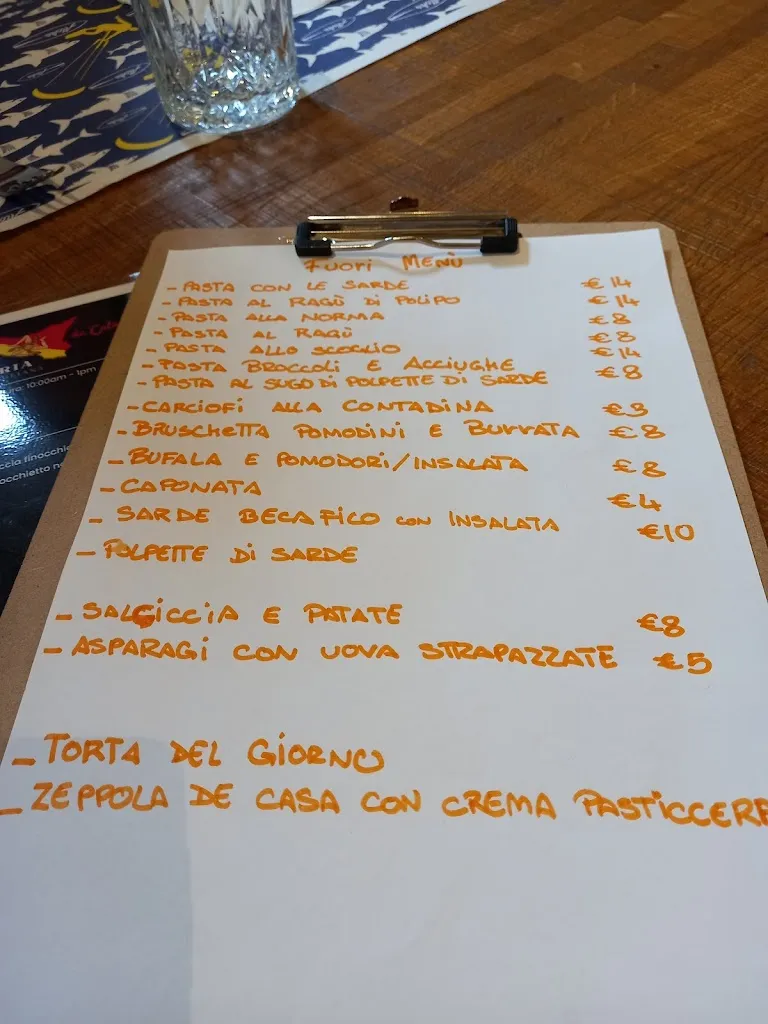 Fuori Menù
- PASTA CON LE SARDE €14
- PASTA AL RAGÙ DI POLIPO €14
- PASTA ALLA NORMA €8
- PASTA AL RAGÙ €8
- PASTA ALLO SCOGLIO €14
- PASTA BROCCOLI E ACCIUGHE €8
- PASTA AL SUGO DI POLPETTE DI SARDE
- CARCIOFI ALLA CONTADINA €3
- BRUSCHETTA POMODINI E BURRATA €8
- BUFALA E POMODORI/INSALATA €8
- CAPONATA €4
- SARDE BECAFICO CON INSALATA €10
- POLPETTE DI SARDE
- SALCICCIA E PATATE €8
- ASPARAGI CON UOVA STRAPAZZATE €5
- TORTA DEL GIORNO
- ZEPPOLA DE CASA CON CREMA PASTICCERE
RIA
10:00am - 1pm
finocchie